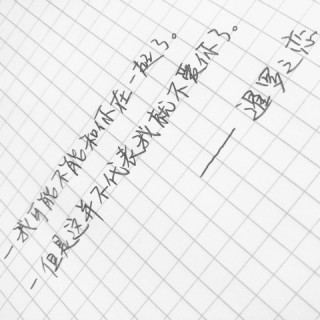 －我可能不能和你在一起了。
－但是这并不代表我就不爱你了。
——遇男之恋